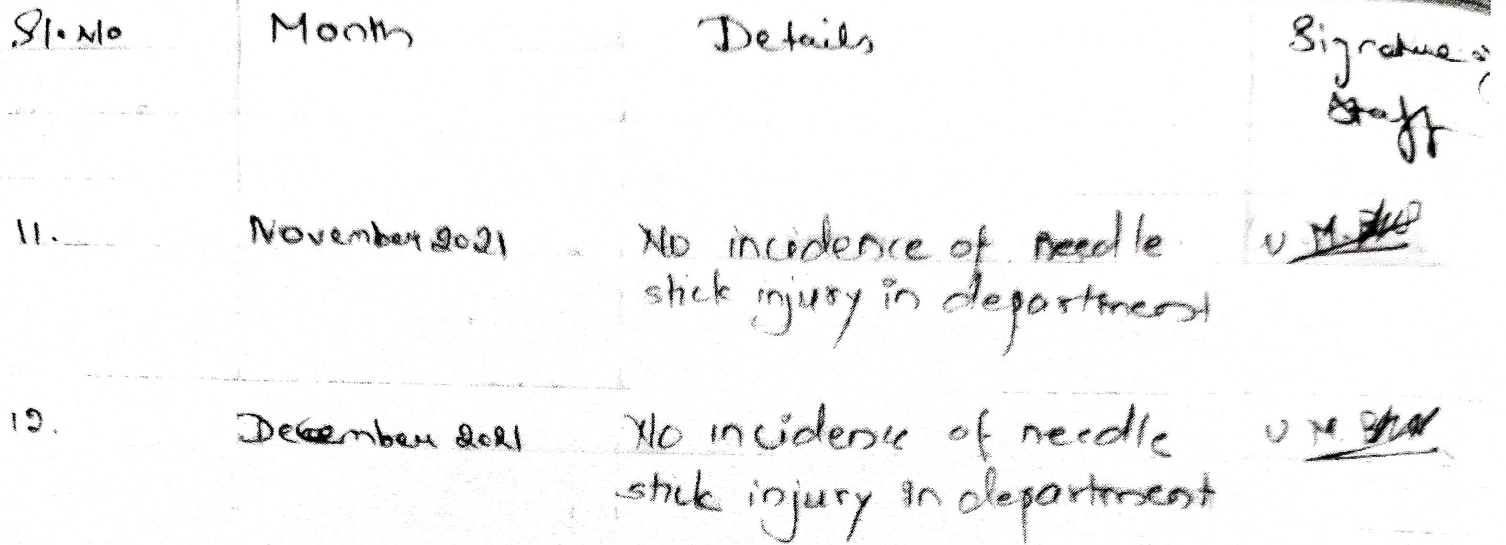 Sl. No Month Details Signature of
Staff
11. November 2021 No incidence of needle U M.
stick injury in department
12. December 2021 No incidence of needle U M.
stick injury in department